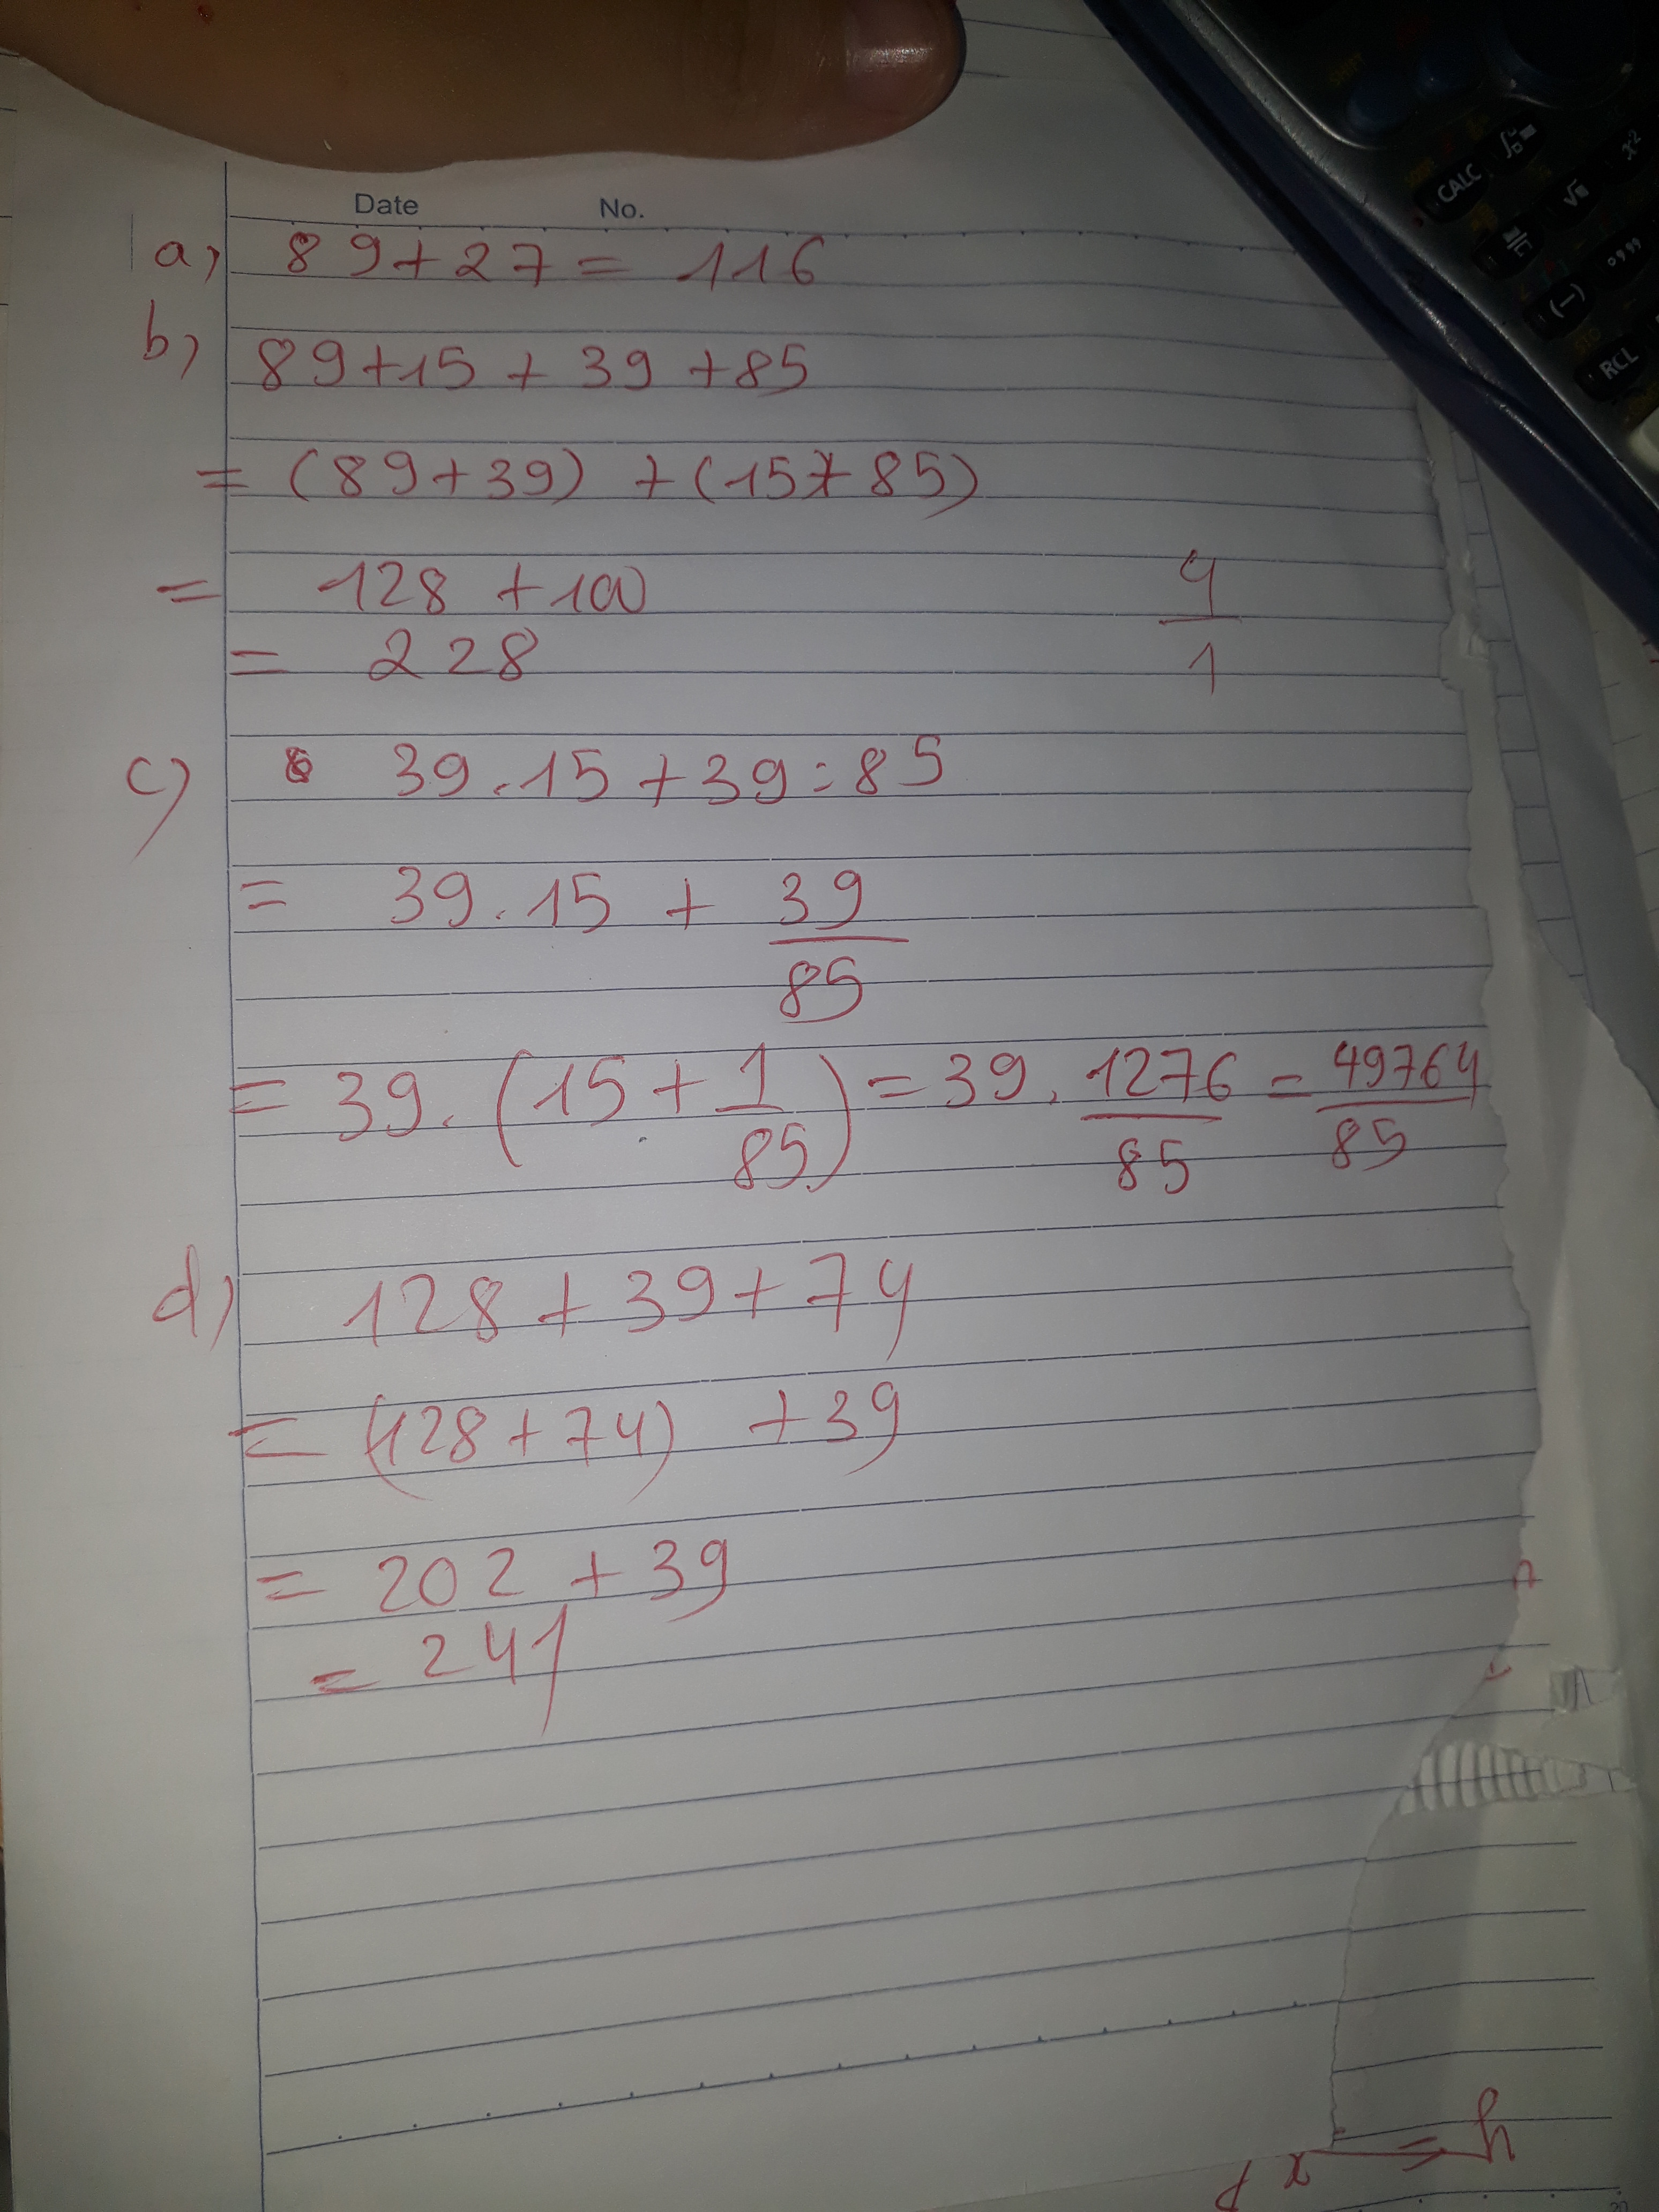 Date No.
a) 89+27=116
b) 89+15+39+85
= (89+39) + (15+85)
= 128 +100
= 228
4
1
c) 39.15+39:85
= 39.15 + 39/85
= 39.(15+1/85) = 39.1276/85 = 49764/85
d) 128+39+74
= (128+74) +39
= 202 + 39
= 241
CALC
x²
(-)
RCL